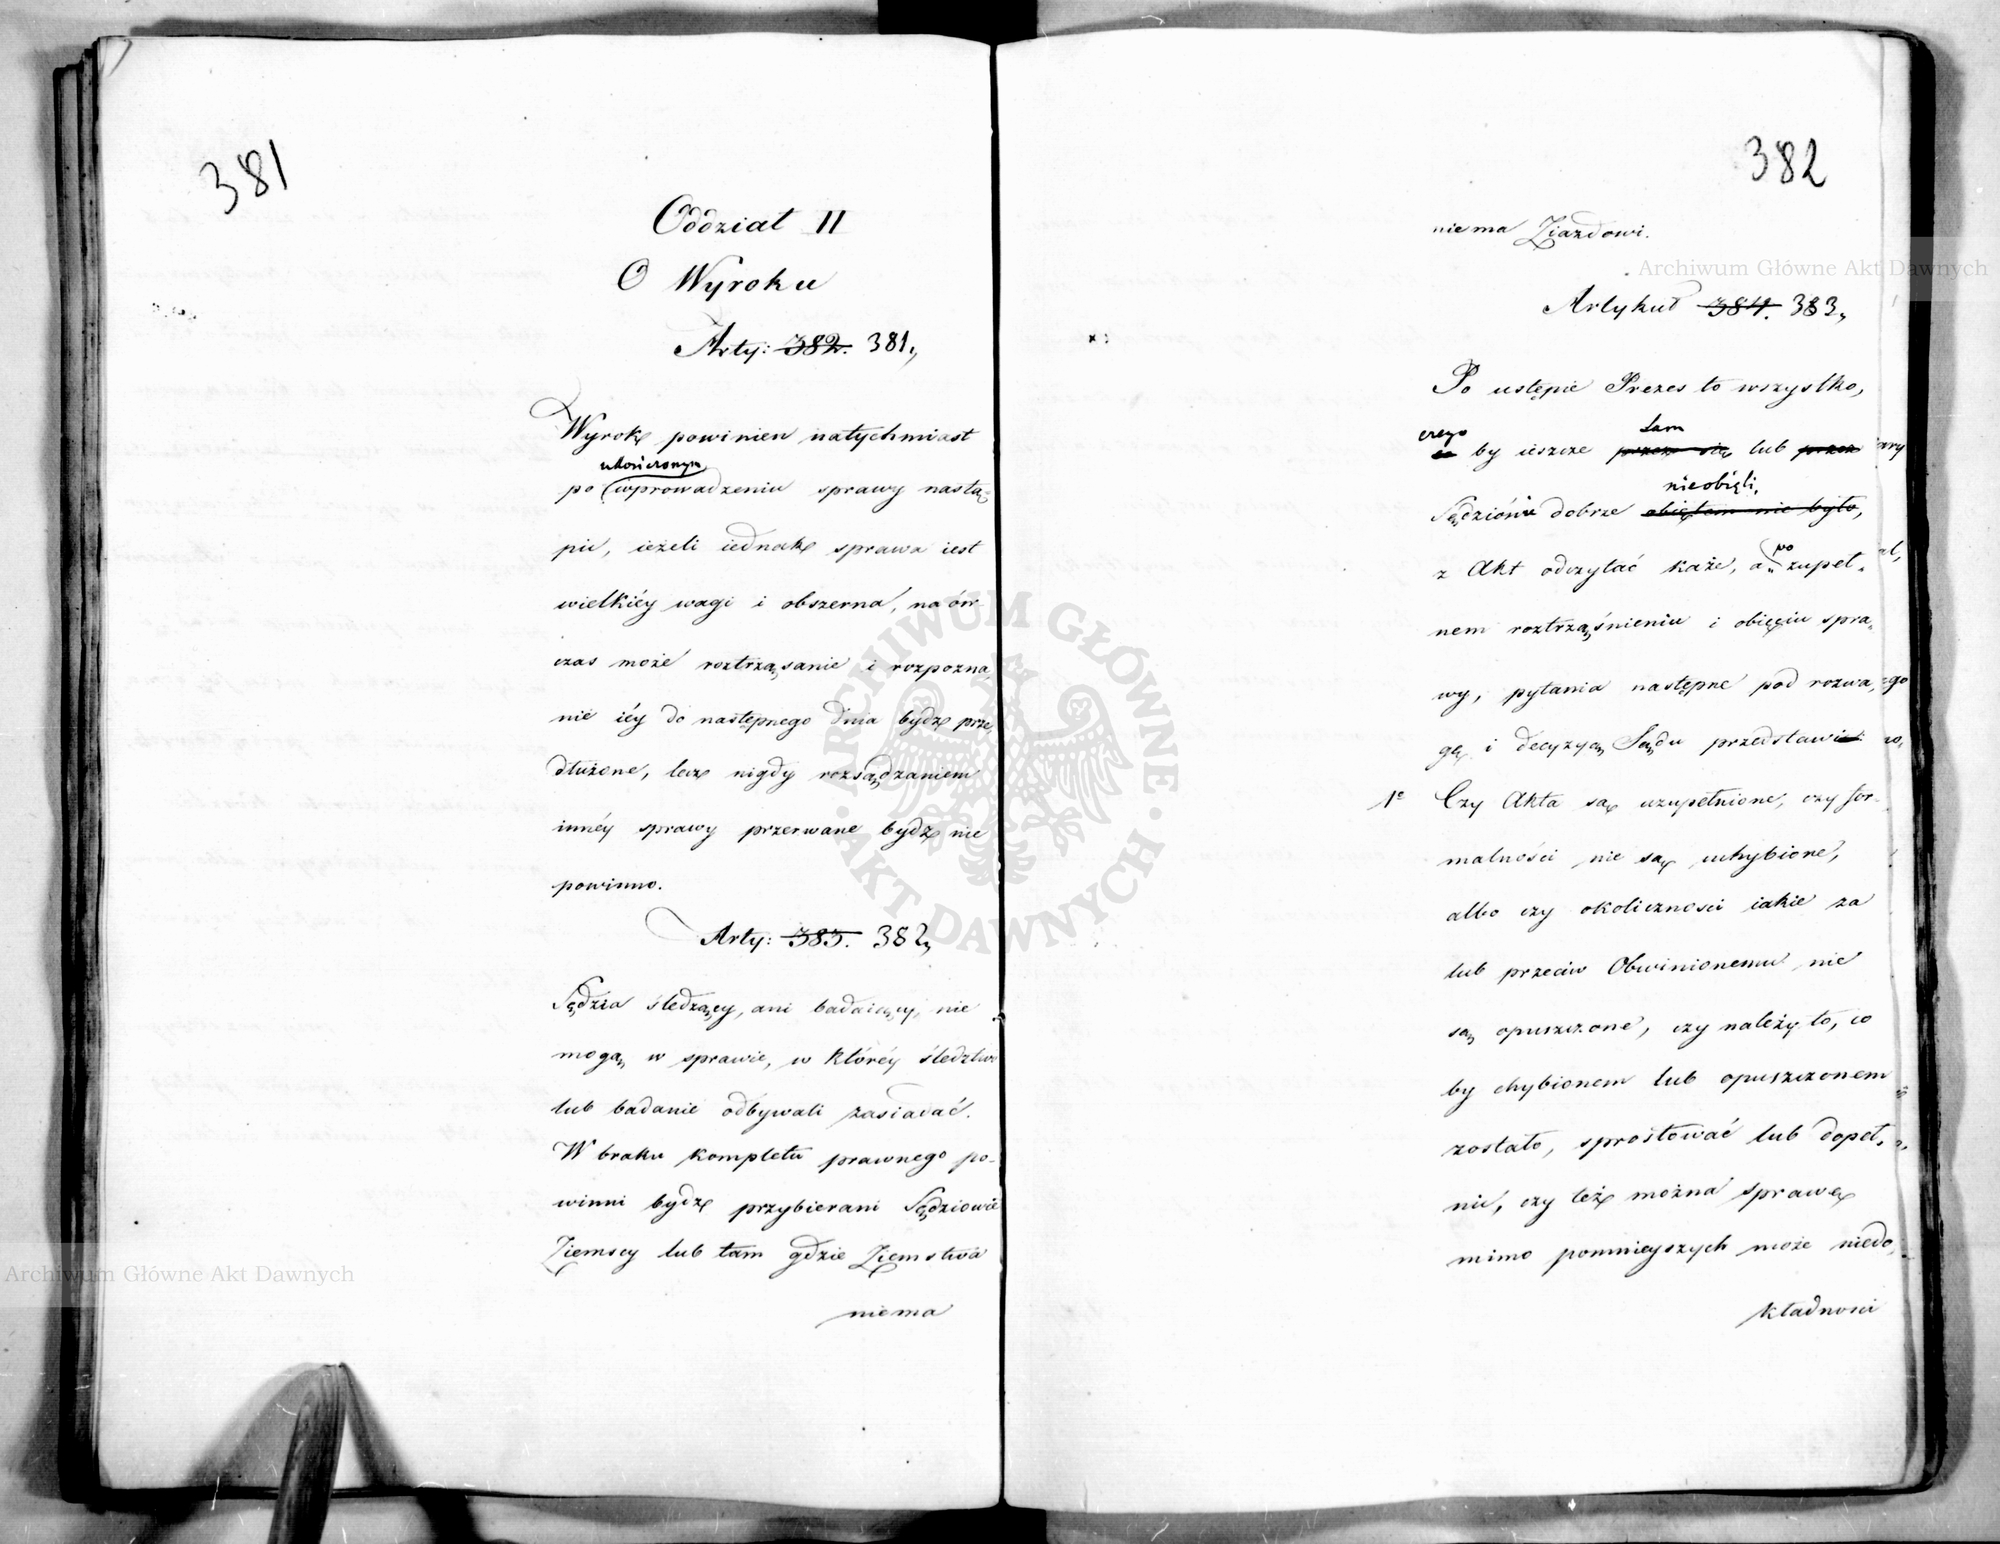 381
Oddział II
O Wyroku
Arty: 382. 381.,
Wyrok powinien natychmiast
ukończonym
po wprowadzeniu sprawy nastą-
pić, ieżeli iednak sprawa iest
wielkiéy wagi i obszerna, na ów-
czas może roztrząsanie i rozpozna,
nie iéy do następnego dnia bydź prze,
dłużone, lecz nigdy rozsądzaniem
innéy sprawy przerwane bydź nie
powinno.
Arty: 383. 382,
Sędzia śledzący, ani badaiący, nie
mogą w sprawie, w któréy śledztwo
lub badanie odbywali zasiadać.
W braku kompletu prawnego po-
winni bydź przybierani Sędziowie
Ziemscy lub tam gdzie Ziemstwa
niema
382
niema Zjazdowi.
Artykuł 384. 383,
Po ustępie Prezes to wszystko,
czego sam
by ieszcze przez się lub przez
nieobięli,
Sędziowie dobrze obiętem nie było,
z Akt odczytać każe, a po zupeł-
nem roztrząśnieniu i obięciu spra,
wy, pytania następne pod rozwa,
gę i decyzyą Sądu przedstawi
1e Czy Akta są uzupełnione, czy for-
malności nie są uchybione,
albo czy okoliczności iakie za
lub przeciw Obwinionemu nie
są opuszczone, czy należy to, co
by chybionem lub opuszczonem
zostało, sprostować lub dopeł,
nić, czy też można sprawę
mimo pomnieyszych może niedo,
kładności
Archiwum Główne Akt Dawnych
Archiwum Główne Akt Dawnych
ARCHIWUM GŁÓWNE AKT DAWNYCH